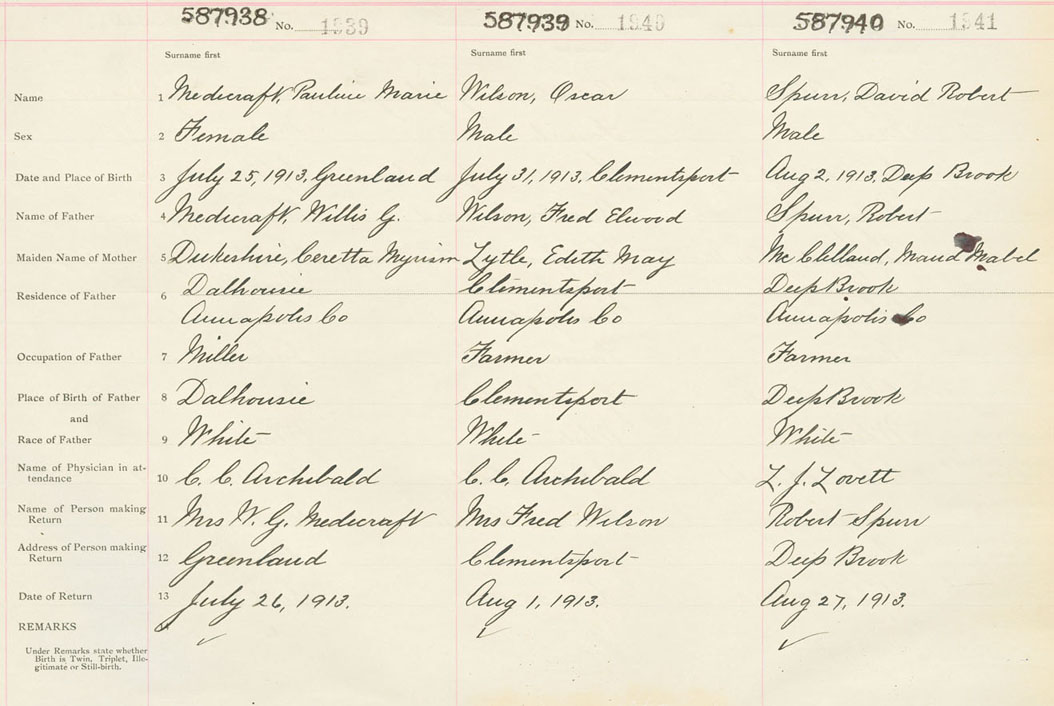 587938 No. 1339 587939 No. 1340 587940 No. 1341
Surname first Surname first Surname first
Name 1 Medicraft, Pauline Marie Wilson, Oscar Spurr, David Robert
Sex 2 Female Male Male
Date and Place of Birth 3 July 25, 1913, Greenland July 31, 1913, Clementsport Aug 2, 1913, Deep Brook
Name of Father 4 Medicraft, Willis G. Wilson, Fred Elwood Spurr, Robert
Maiden Name of Mother 5 Dukeshire, Ceretta Myriam Lytle, Edith May Mc Clelland, Maud Mabel
Residence of Father 6 Dalhousie Clementsport Deep Brook
Annapolis Co Annapolis Co Annapolis Co
Occupation of Father 7 Miller Farmer Farmer
Place of Birth of Father 8 Dalhousie Clementsport Deep Brook
and
Race of Father 9 White White White
Name of Physician in at-
tendance 10 C. C. Archibald C. C. Archibald L. J. Lovett
Name of Person making
Return 11 Mrs W. G. Medicraft Mrs Fred Wilson Robert Spurr
Address of Person making
Return 12 Greenland Clementsport Deep Brook
Date of Return 13 July 26, 1913. Aug 1, 1913. Aug 27, 1913.
REMARKS
Under Remarks state whether
Birth is Twin, Triplet, Ille-
gitimate or Still-birth.